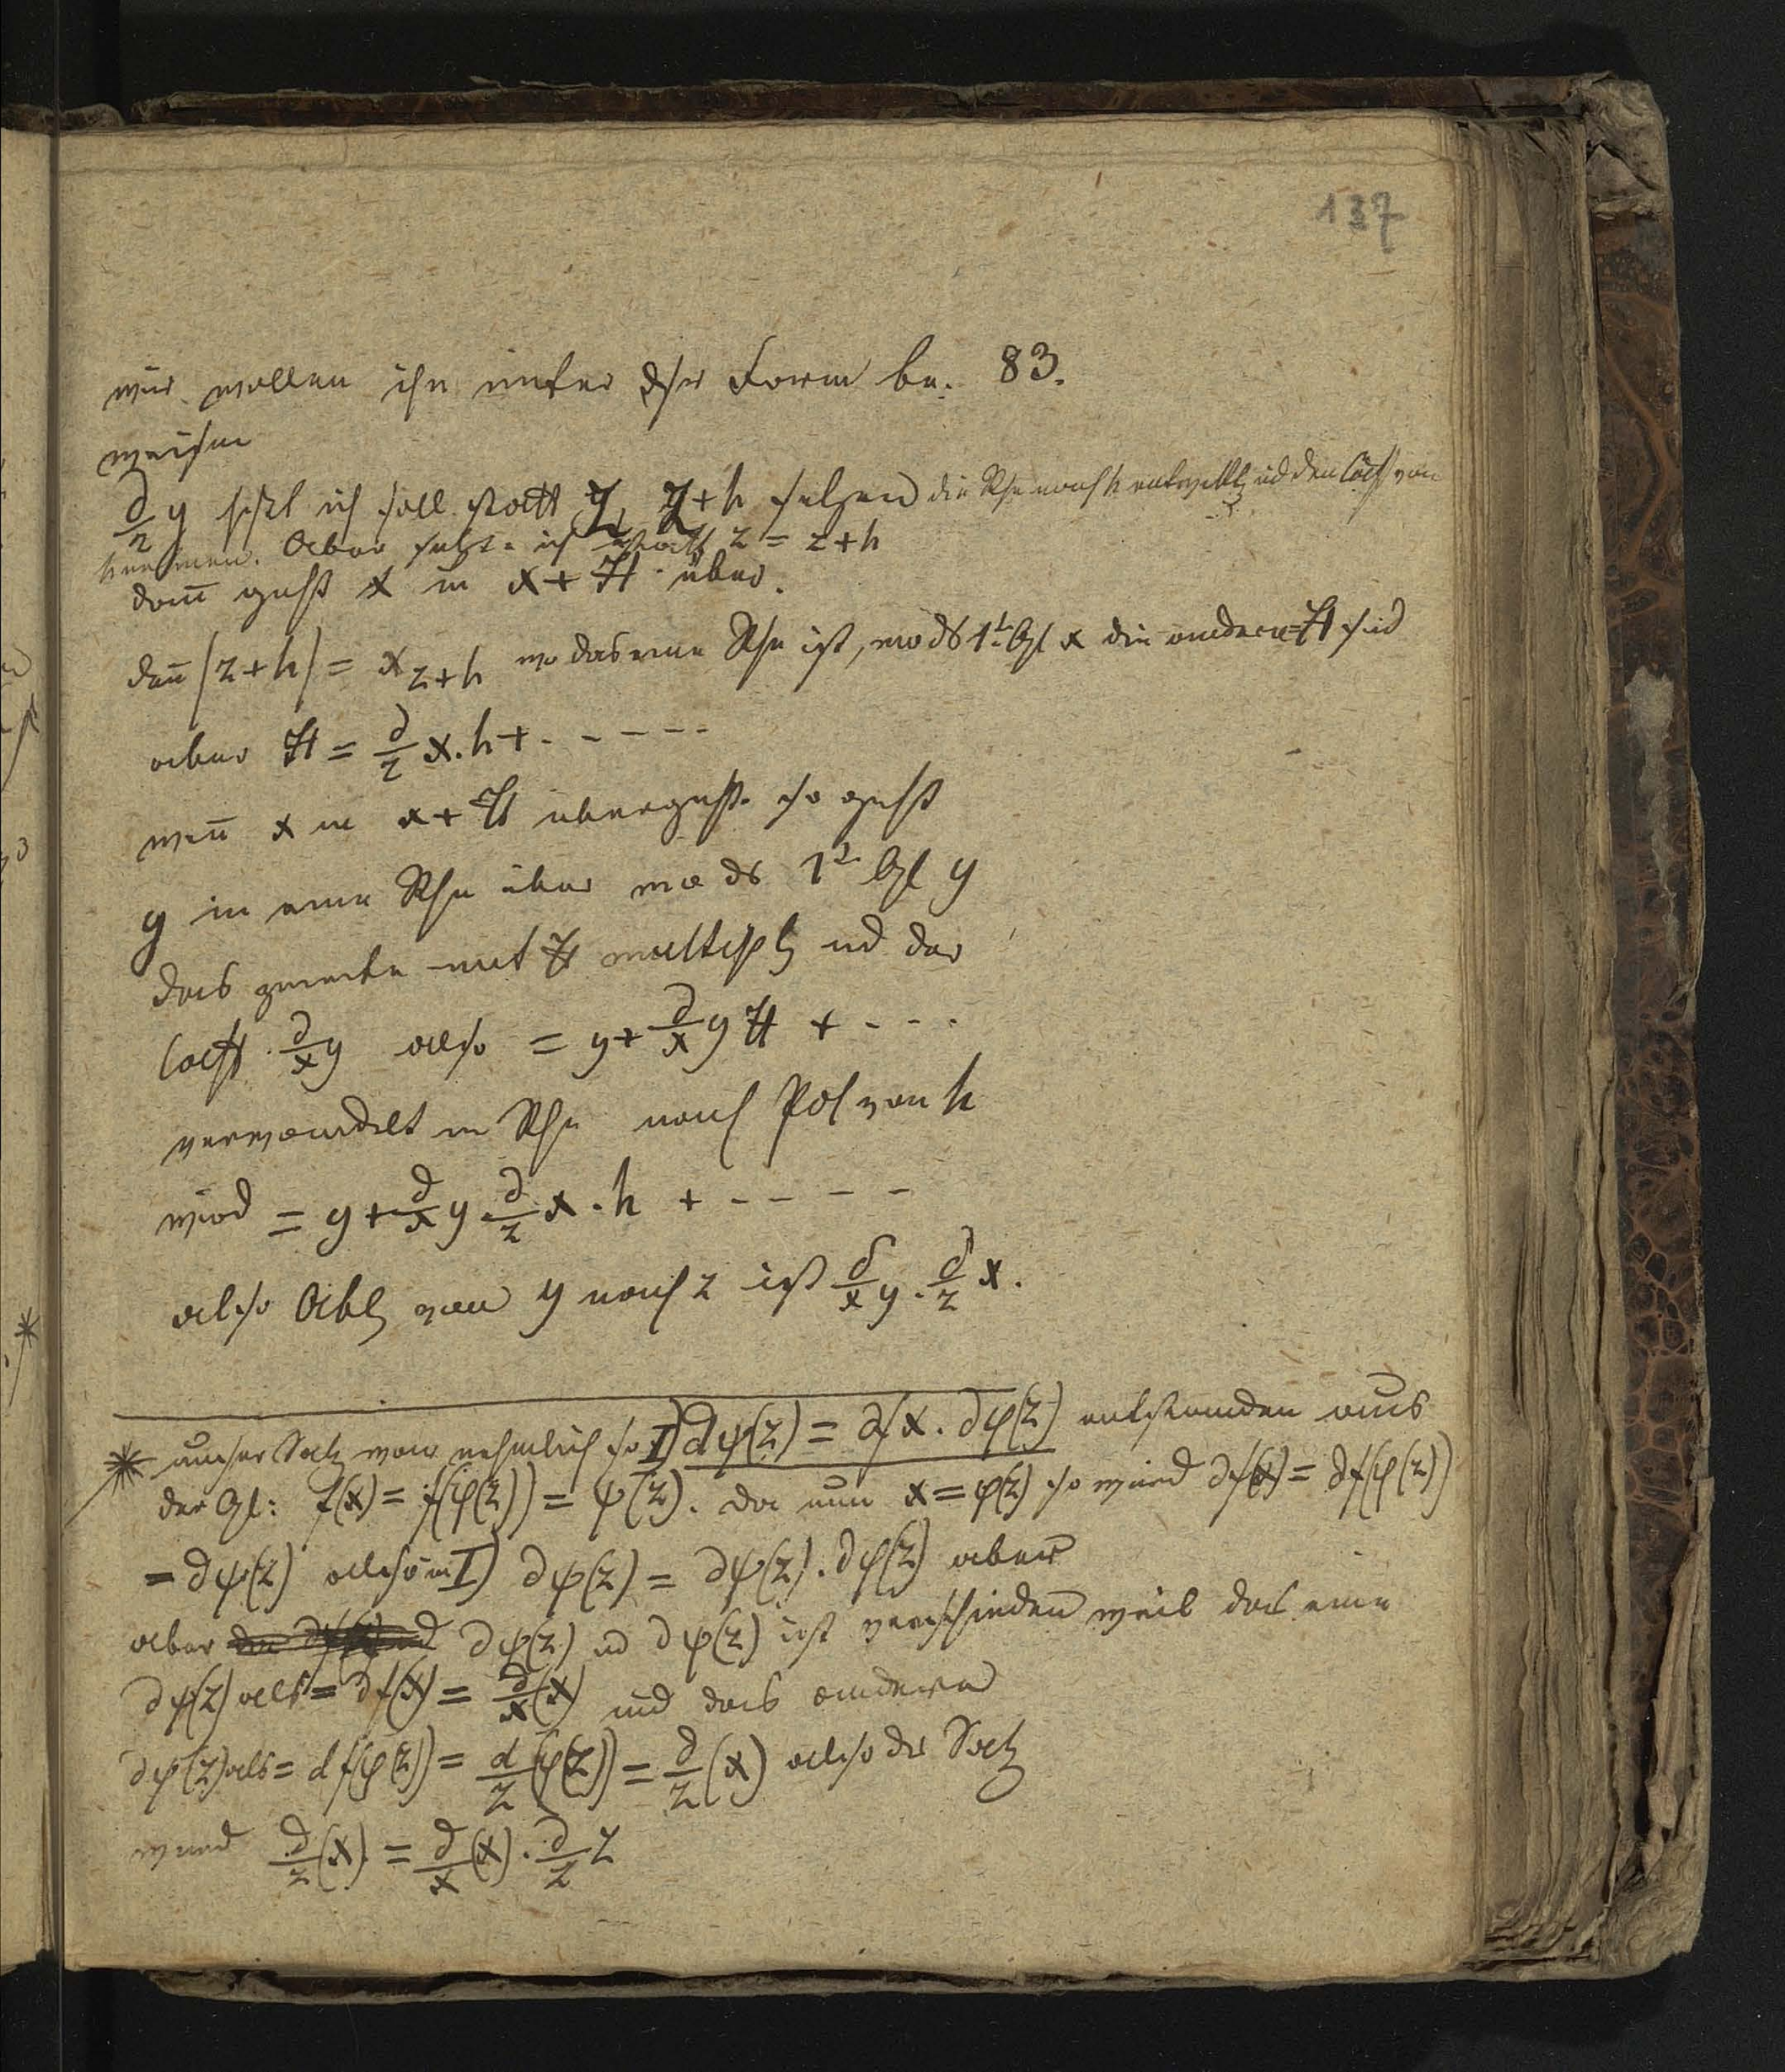 137
wir wollen ihn unter dsr Form be. 83.
weisen
d/z y heißt ich soll statt z, z+h setzen die Rhe nach h entwickl ud den Coeff von
h nehmen. Aber setze ich statt z = z+h
dann geht x in x+H über.
den (z+h) = x z+h wo das eine Rhe ist, wo ds 1t Gl x die anderen = H sind
aber H = d/z x.h + - - - - -
wen x in x+H übergeht so geht
y in eine Rhe über wo ds 1t Gl y
das zweite mit H multipl ud der
Coeff d/x y also = y + d/x y H + - - -
verwandelt in Rhe nach Pot von h
wird = y + d/x y . d/z x . h + - - - - -
also Abl von y nach z ist d/x y . d/z x.
* unser Satz war nehmlich so I) dψ(z) = df x . dφ(z) entstanden aus
der Gl: f(x) = f(φ(z)) = ψ(z). da nun x = φ(z) so wird df(x) = df(φ(z))
= dψ(z) also in I) dψ(z) = dψ(z) . dφ(z) aber
aber dψ(z) ud dψ(z) ist verschieden weil das eine
dψ(z) als = df(x) = d/x (x) und das andere
dψ(z) als = df(φ(z)) = d/z (φ(z)) = d/z (x) also der Satz
wird d/z (x) = d/x (x) . d/z z